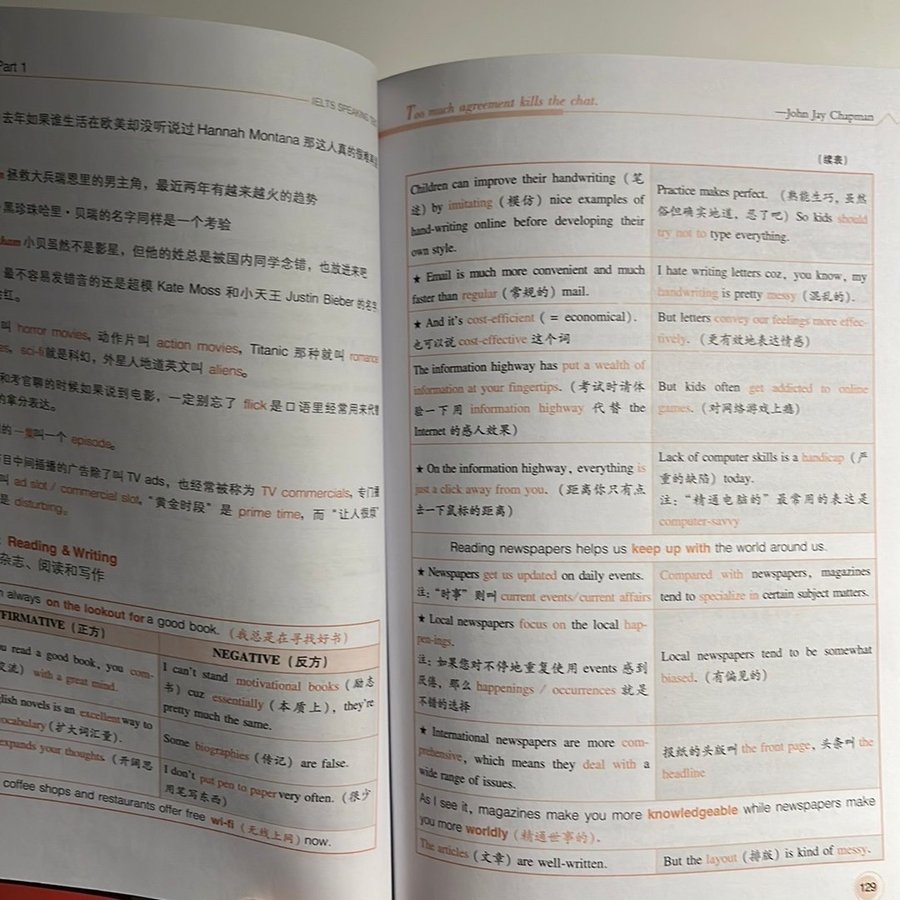 Part 1
IELTS SPEAKING
去年如果谁生活在欧美却没听说过 Hannah Montana 那这人真的很难
拯救大兵瑞恩里的男主角，最近两年有越来越火的趋势
黑珍珠哈里·贝瑞的名字同样是一个考验
ham 小贝虽然不是影星，但他的姓总是被国内同学念错，也放进来吧
最不容易发错音的还是超模 Kate Moss 和小天王 Justin Bieber 的名字
红。
叫 horror movies, 动作片叫 action movies, Titanic 那种就叫 romance
es, sci-fi就是科幻，外星人地道英文叫 aliens。
和考官聊的时候如果说到电影，一定别忘了 flick是口语里经常用来代替
的拿分表达。
的一集叫一个 episode。
目中间插播的广告除了叫 TV ads, 也经常被称为 TV commercials, 专门
叫 ad slot / commercial slot, “黄金时段” 是 prime time, 而 “让人很烦”
是 disturbing。
Reading & Writing
杂志、阅读和写作
always on the lookout for a good book.（我总是在寻找好书）
FIRMATIVE（正方）
NEGATIVE（反方）
ou read a good book, you com-
交流）with a great mind.
I can't stand motivational books（励志
书）cuz essentially（本质上）, they're
pretty much the same.
glish novels is an excellent way to
vocabulary（扩大词汇量）.
Some biographies（传记）are false.
expands your thoughts.（开阔思
I don't put pen to paper very often.（很少
用笔写东西）
coffee shops and restaurants offer free wi-fi（无线上网）now.
Too much agreement kills the chat.
—John Jay Chapman
（续表）
Children can improve their handwriting（笔
迹）by imitating（模仿）nice examples of
hand-writing online before developing their
own style.
Practice makes perfect.（熟能生巧，虽然
俗但确实地道，忍了吧）So kids should
try not to type everything.
★ Email is much more convenient and much
faster than regular（常规的）mail.
I hate writing letters coz, you know, my
handwriting is pretty messy（混乱的）.
★ And it's cost-efficient（= economical）.
也可以说 cost-effective 这个词
But letters convey our feelings more effec-
tively.（更有效地表达情感）
The information highway has put a wealth of
information at your fingertips.（考试时请体
验一下用 information highway 代替 the
Internet 的感人效果）
But kids often get addicted to online
games.（对网络游戏上瘾）
★ On the information highway, everything is
just a click away from you.（距离你只有点
击一下鼠标的距离）
Lack of computer skills is a handicap（严
重的缺陷）today.
注：“精通电脑的”最常用的表达是
computer-savvy
Reading newspapers helps us keep up with the world around us.
★ Newspapers get us updated on daily events.
注：“时事”则叫 current events/current affairs
Compared with newspapers, magazines
tend to specialize in certain subject matters.
★ Local newspapers focus on the local hap-
pen-ings.
注：如果您对不停地重复使用 events 感到
厌倦，那么 happenings / occurrences 就是
不错的选择
Local newspapers tend to be somewhat
biased.（有偏见的）
★ International newspapers are more com-
prehensive, which means they deal with a
wide range of issues.
报纸的头版叫 the front page，头条叫 the
headline
As I see it, magazines make you more knowledgeable while newspapers make
you more worldly（精通世事的）.
The articles（文章）are well-written.
But the layout（排版）is kind of messy.
129